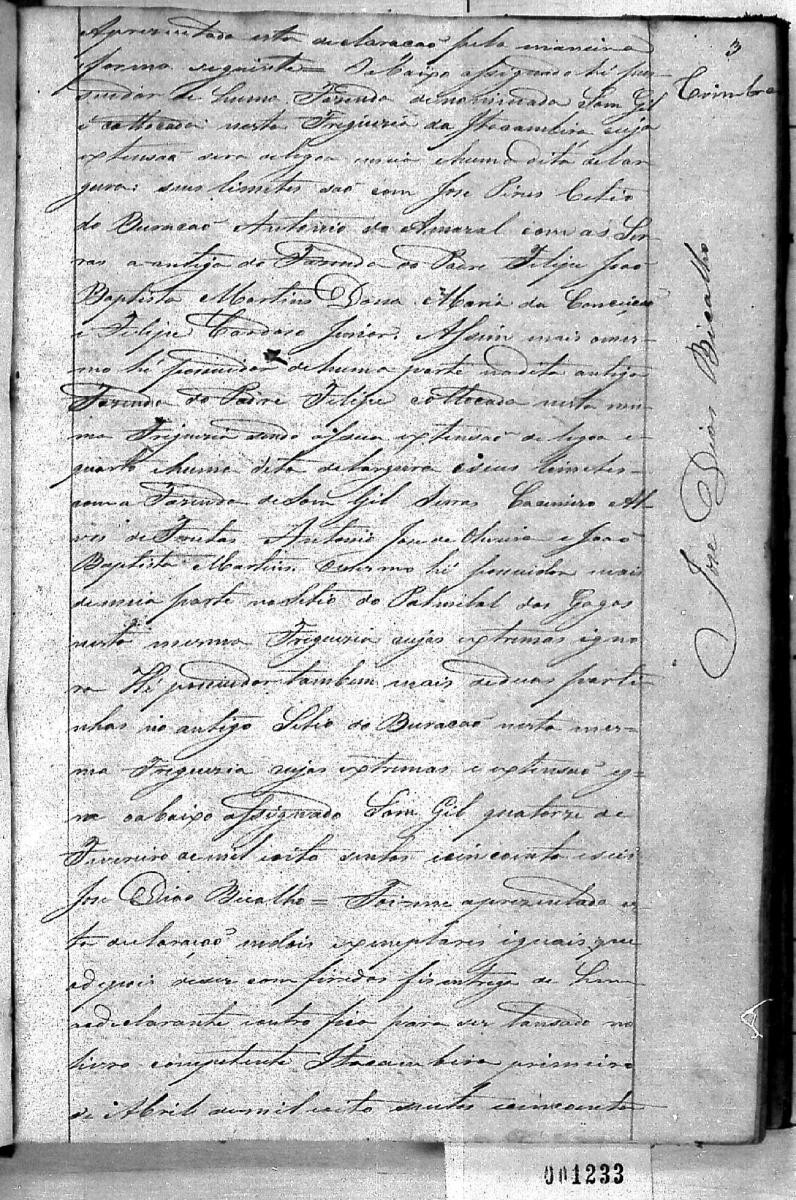 3
Coimbra
Aprezentada esta declaracaõ pela maneira
forma seguinte = O abaixo assignado hé pos
suidor de huma Fazenda denominada Sam Gil
e collocada nesta Freguezia da Itacambira cuja
extensaõ sera de legoa meia e huma dita de lar
gura: seus limites saõ com José Pires Sitio
do Buracaõ Antonio do Amaral com as Ser
ras a antiga do Fazenda do Padre Felipe Joaõ
Baptista Martins Dona Maria da Conceiçaõ
e Felipe Cardoso Junior. Assim mais o mes-
mo hé possuidor de huma parte na dita antiga
Fazenda do Padre Felipe collocada nesta mes
ma Freguezia sendo a sua extensaõ de legoa e
quarto e huma dita de largura e seus limites
com a Fazenda de Sam Gil Serras Casemiro Al
ves de Freitas Antonio Jose de Oliveira e Joaõ
Baptista Martins. O mesmo hé possuidor mais
de meia parte no Sitio do Palmital dos Gagos
nesta mesma Freguezia cujas extremas igno
ra Hé possuidor tambem mais de duas parti
nhas no antigo Sitio do Buracaõ nesta mes-
ma Freguezia cujas extremas e extensaõ ig-
ra o abaixo assignado Sam Gil quatorze de
Fevereiro de mil oito sentos e cincoenta e seis
Jose Dias Bicalho = Foi me aprezentada es
ta declaraçaõ em dois exemplares iguais que
e depois de ser conferidos fis entrega de hum
ao declarante e outro fica para ser lansado no
livro competente Itacambira primeiro
de Abril de mil oito sentos e cincoenta
José Dias Bicalho
001233